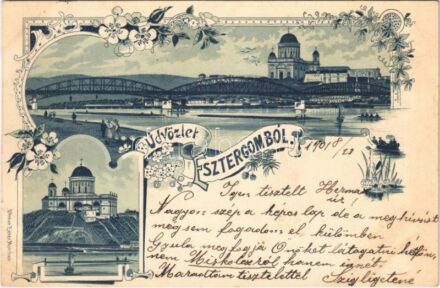 Üdvözlet
ESZTERGOMBÓL.
1901 8/23
Igen tisztelt Herman
úr
Nagyon szép a képes lap de a meghívást
meg sem fogadom el különben
Gyula meg fogja Önöket látogatni
nem Miskolczról hanem innét
Maradtam tisztelettel
Szigligetiné